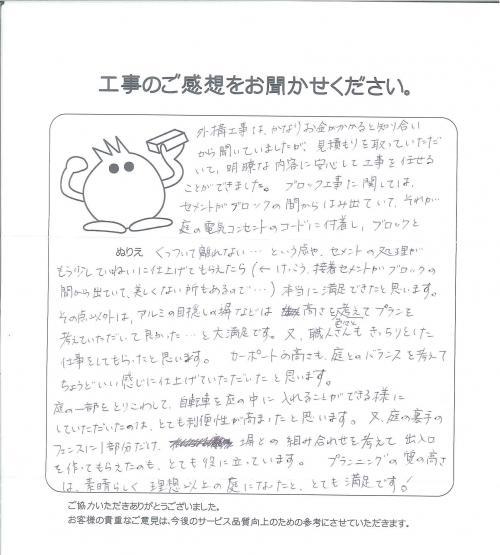 工事のご感想をお聞かせください。
外構工事は、かなりお金がかかると知り合い
から聞いていましたが、見積もりを取っていただ
いて、明瞭な内容に安心して工事を任せる
ことができました。 ブロック工事に関しては、
セメントがブロックの間からはみ出ていて、それが
庭の電気コンセントのコードに付着し、ブロックと
ぬりえ くっついて離れない… という感や、セメントの処理が
もう少していねいに仕上げてもらえたら(←けっこう、接着セメントがブロックの
間から出ていて、美しくない所もあるので…)本当に満足できたと思います。
その点以外は、アルミの目隠しの塀などは 高さを考えてプランを
考えていただいて良かった…と大満足です。又、職人さんも きっちりとした
仕事をしてもらったと思います。 カーポートの高さも、庭とのバランスを考えて
ちょうどいい感じに仕上げていただいたと思います。
庭の一部をとりこわして、自転車を庭の中に入れることができる様に
していただいたのは、とても利便性が高まったと思います。又、庭の裏手の
フェンスに1部分だけ、 塀との組み合わせを考えて 出入口
を作ってもらえたのも、とても役に立っています。 プランニングの質の高さ
は、素晴らしく 理想以上の庭になったと、とても満足です!
ご協力いただきありがとうございました。
お客様の貴重なご意見は、今後のサービス品質向上のための参考にさせていただきます。